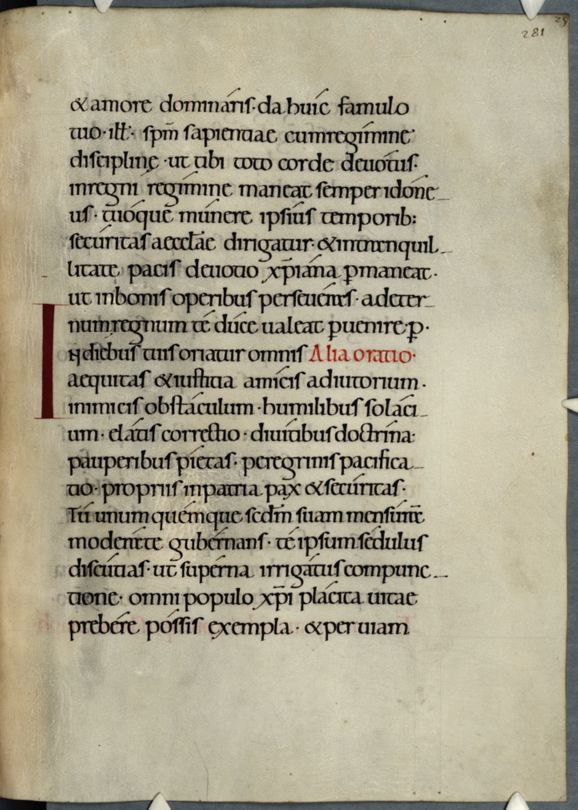 281
& amore dominaris· da huic famulo
tuo· ill̅· sp̅m sapientiae cum regimine
discipline ·ut tibi toto corde devotus·
in regni regimine maneat semper idone
us· tuoque munere ipsius temporib:
securitas aeccl̅ae dirigatur· & in tranquil
litate pacis devotio xp̅iana p̲maneat·
ut in bonis operibus perseverans· ad eter
num regnum te duce valeat p̲venire· p̲·
In diebus tuis oriatur omnis Alia oratio·
aequitas & iustitia amicis adiutorium·
inimicis obstaculum· humilibus solaci
um· elatis correctio· divitibus doctrina·
pauperibus pietas· peregrinis pacifica
tio· propriis in patria pax & securitas·
Tu unumquemque sed̅m suam mensuram
moderate gubernans· te ipsum sedulus
discutias· ut superna irrigatus compunc
tione· omni populo xp̅i placita vitae
prebere possis exempla· & per viam